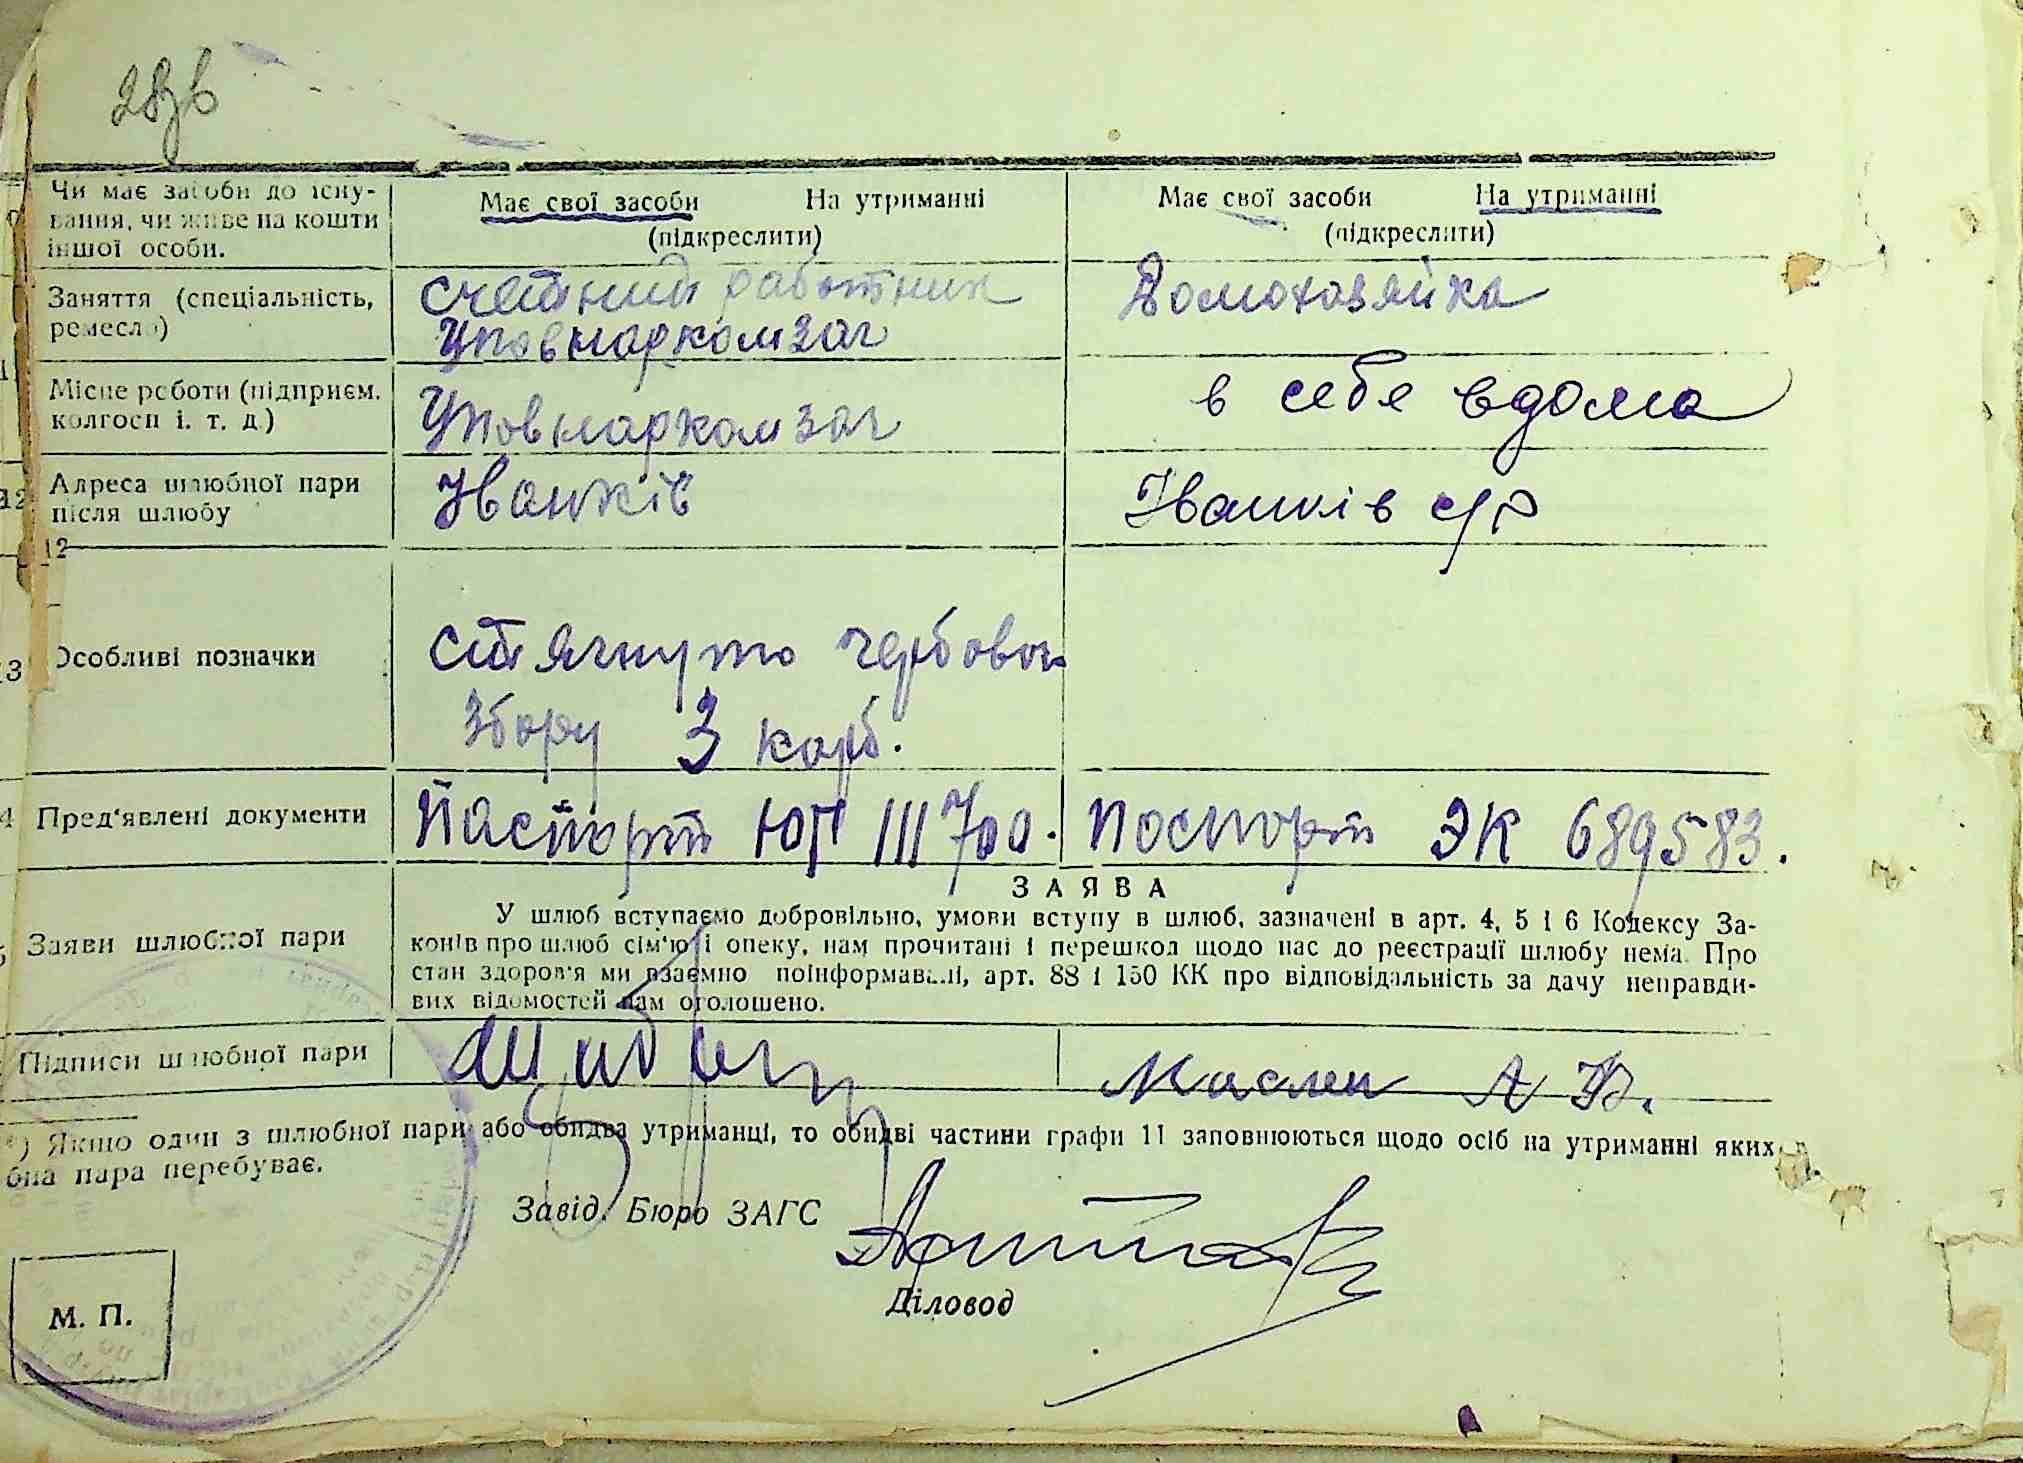 28зв
Чи має засоби до існу-
вання, чи живе на кошти
іншої особи.
Має свої засоби На утриманні
(підкреслити)
Має свої засоби На утриманні
(підкреслити)
Заняття (спеціальність,
ремесло)
счетний работник
Уповнаркомзаг
Домохазяйка
Місце роботи (підприєм.
колгосп і. т. д.)
Уповнаркомзаг
в себе вдома
12 Адреса шлюбної пари
після шлюбу
Іванків
Іванків с/р
12
13 Особливі позначки
стягнуто гербовог
збору 3 карб.
4 Пред'явлені документи
Паспорт ЮП 111700.
Паспорт ЭК 689583.
5 Заяви шлюбної пари
ЗАЯВА
У шлюб вступаємо добровільно, умови вступу в шлюб, зазначені в арт. 4, 5 і 6 Кодексу За-
конів про шлюб сім'ю і опеку, нам прочитані і перешкод щодо нас до реєстрації шлюбу нема. Про
стан здоров'я ми взаємно поінформавалі, арт. 88 і 150 КК про відповідальність за дачу неправди-
вих відомостей нам оголошено.
Підписи шлюбної пари
А
*) Якщо один з шлюбної пари або обидва утриманці, то обидві частини графи 11 заповнюються щодо осіб на утриманні яких
бна пара перебуває.
Завід. Бюро ЗАГС
Діловод
М. П.